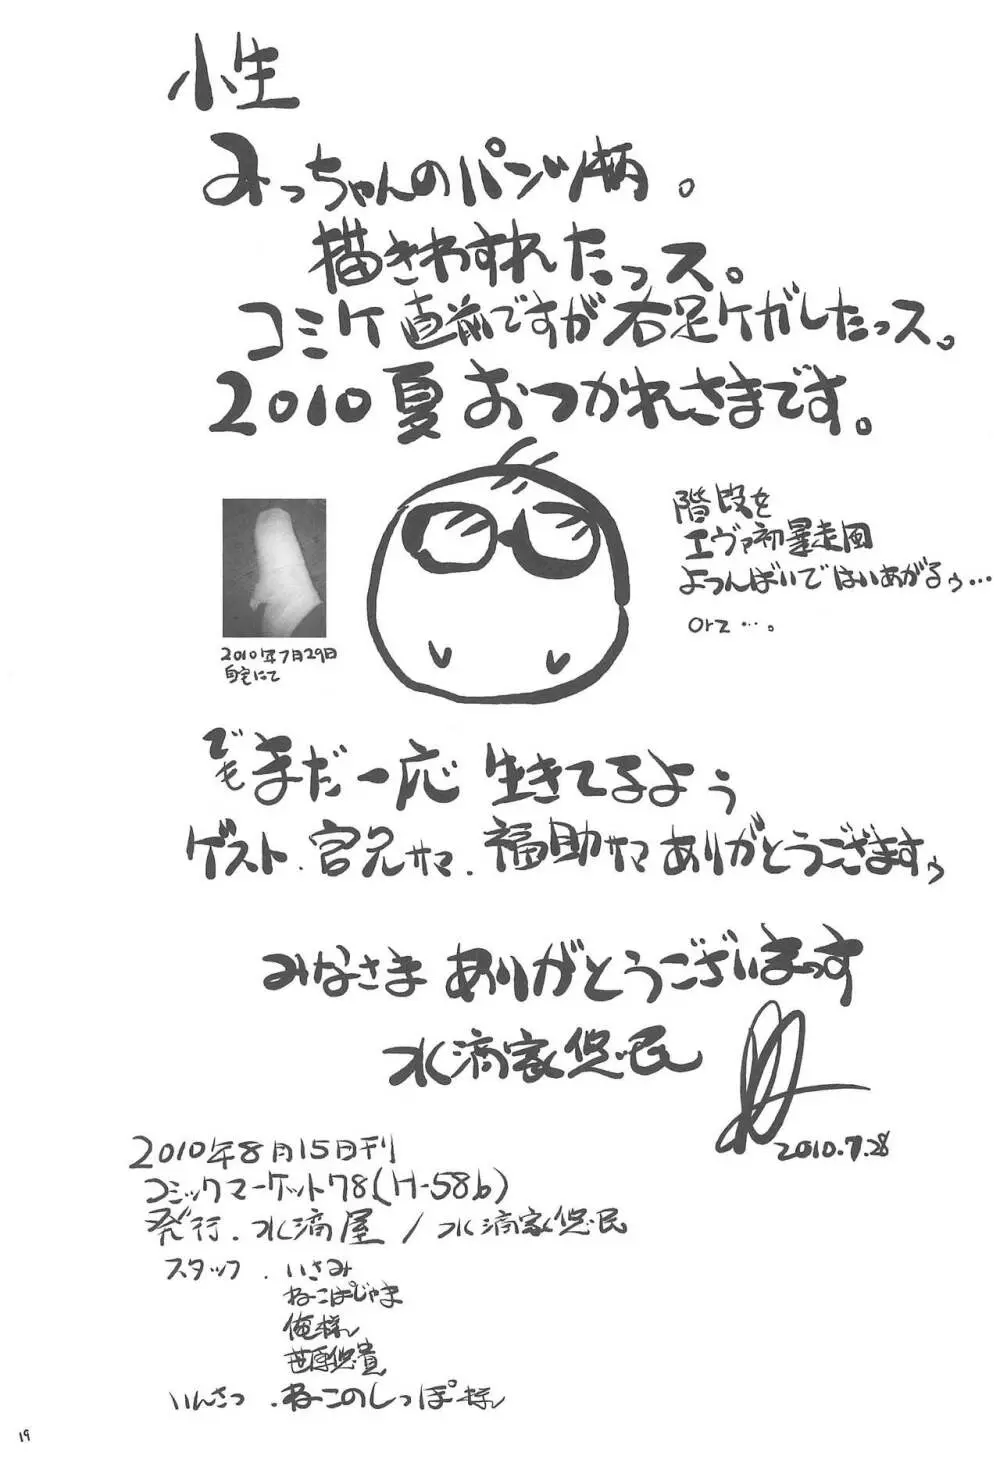 小生
みっちゃんのパンツ柄。
描きわすれたっス。
コミケ直前ですが右足ケガしたっス。
2010夏おつかれさまです。
階段を
エヴァ初暴走風
よつんばいではいあがるぅ…
orz…。
2010年7月29日
自宅にて
でもまだ一応生きてるよぅ
ゲスト.宮兄サマ.福助サマありがとうござますぅ
みなさまありがとうございまっす
水滴家悠民
2010.7.28
2010年8月15日刊
コミックマーケット78(H-58b)
発行.水滴屋/水滴家悠民
スタッフ.いさみ
ねこぱじゃま
俺様
笹原悠貴
いんさつ.ねこのしっぽ様
19